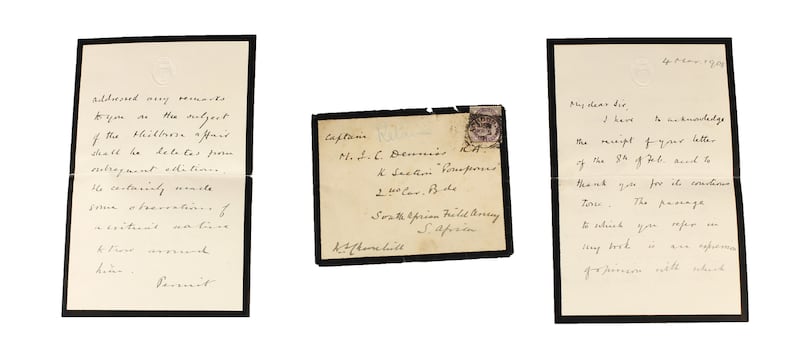 addressed any remarks
to you on the subject
of the affair
shall be deleted from
subsequent editions.
He certainly made
some observations of
a critical nature
to those around
him.
Permit
Captain
M. J. C. Denniss R.A.
K Section "Pompoms"
2nd Cav. Bde
South African Field Army
S. Africa
W. S. Churchill
4 Mar. 1901
My dear Sir,
I have to acknowledge
the receipt of your letter
of the 8th of Feb. and to
thank you for its courteous
tone. The passage
to which you refer in
my book is an expression
of opinion with which